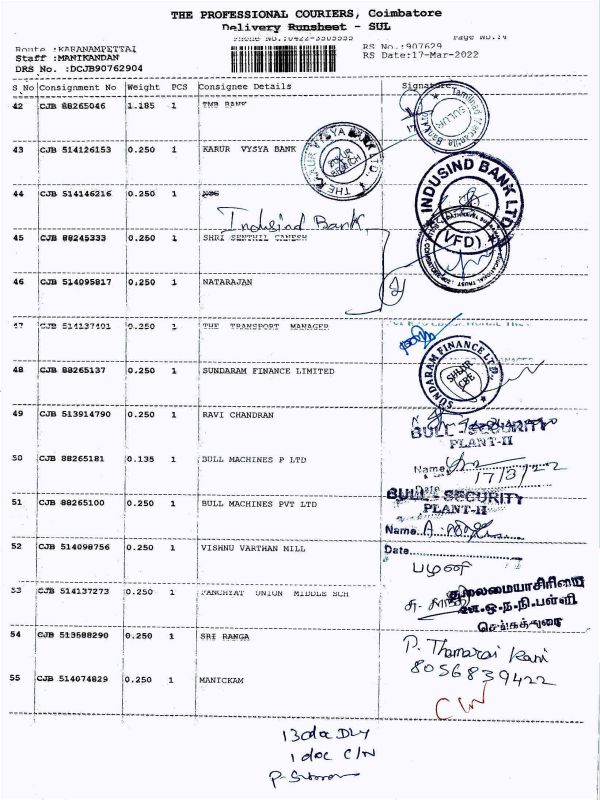 THE PROFESSIONAL COURIERS, Coimbatore
Delivery Runsheet - SUL
Page No.:4
Route :KARANAMPETTAI RS No.:907629
Staff :MANIKANDAN RS Date:17-Mar-2022
DRS No. :DCJB90762904
S No Consignment No Weight PCS Consignee Details Signature
42 CJB 88265046 1.185 1 TMB BANK
Tamilnad Mercantile Bank Ltd SULUR
17
43 CJB 514126153 0.250 1 KARUR VYSYA BANK
THE KARUR VYSYA BANK LTD. SULUR BRANCH
44 CJB 514146216 0.250 1
INDUSIND BANK LTD (VFD)
Indusind Bank
45 CJB 88245333 0.250 1 SHRI SENTHIL GANESH
46 CJB 514095817 0.250 1 NATARAJAN
47 CJB 514137401 0.250 1 THE TRANSPORT MANAGER
MANAGER
48 CJB 88265137 0.250 1 SUNDARAM FINANCE LIMITED
SUNDARAM FINANCE LTD. SULUR CBE
49 CJB 513914790 0.250 1 RAVI CHANDRAN
BULL SECURITY
PLANT-II
50 CJB 88265181 0.135 1 BULL MACHINES P LTD
Name
17/3/22
Date
BULL SECURITY
51 CJB 88265100 0.250 1 BULL MACHINES PVT LTD
PLANT-II
Name..A.
52 CJB 514098756 0.250 1 VISHNU VARTHAN MILL
Date
பழனி
53 CJB 514137273 0.250 1 PANCHYAT UNION MIDDLE SCH
தலைமையாசிரியை
ஊ.ஒ.ந.நி.பள்ளி
செங்கத்துறை
54 CJB 513588290 0.250 1 SRI RANGA
P. Thamarai Kani
8056839422
55 CJB 514074829 0.250 1 MANICKAM
C/N
13 doc DLY
1 doc C/N